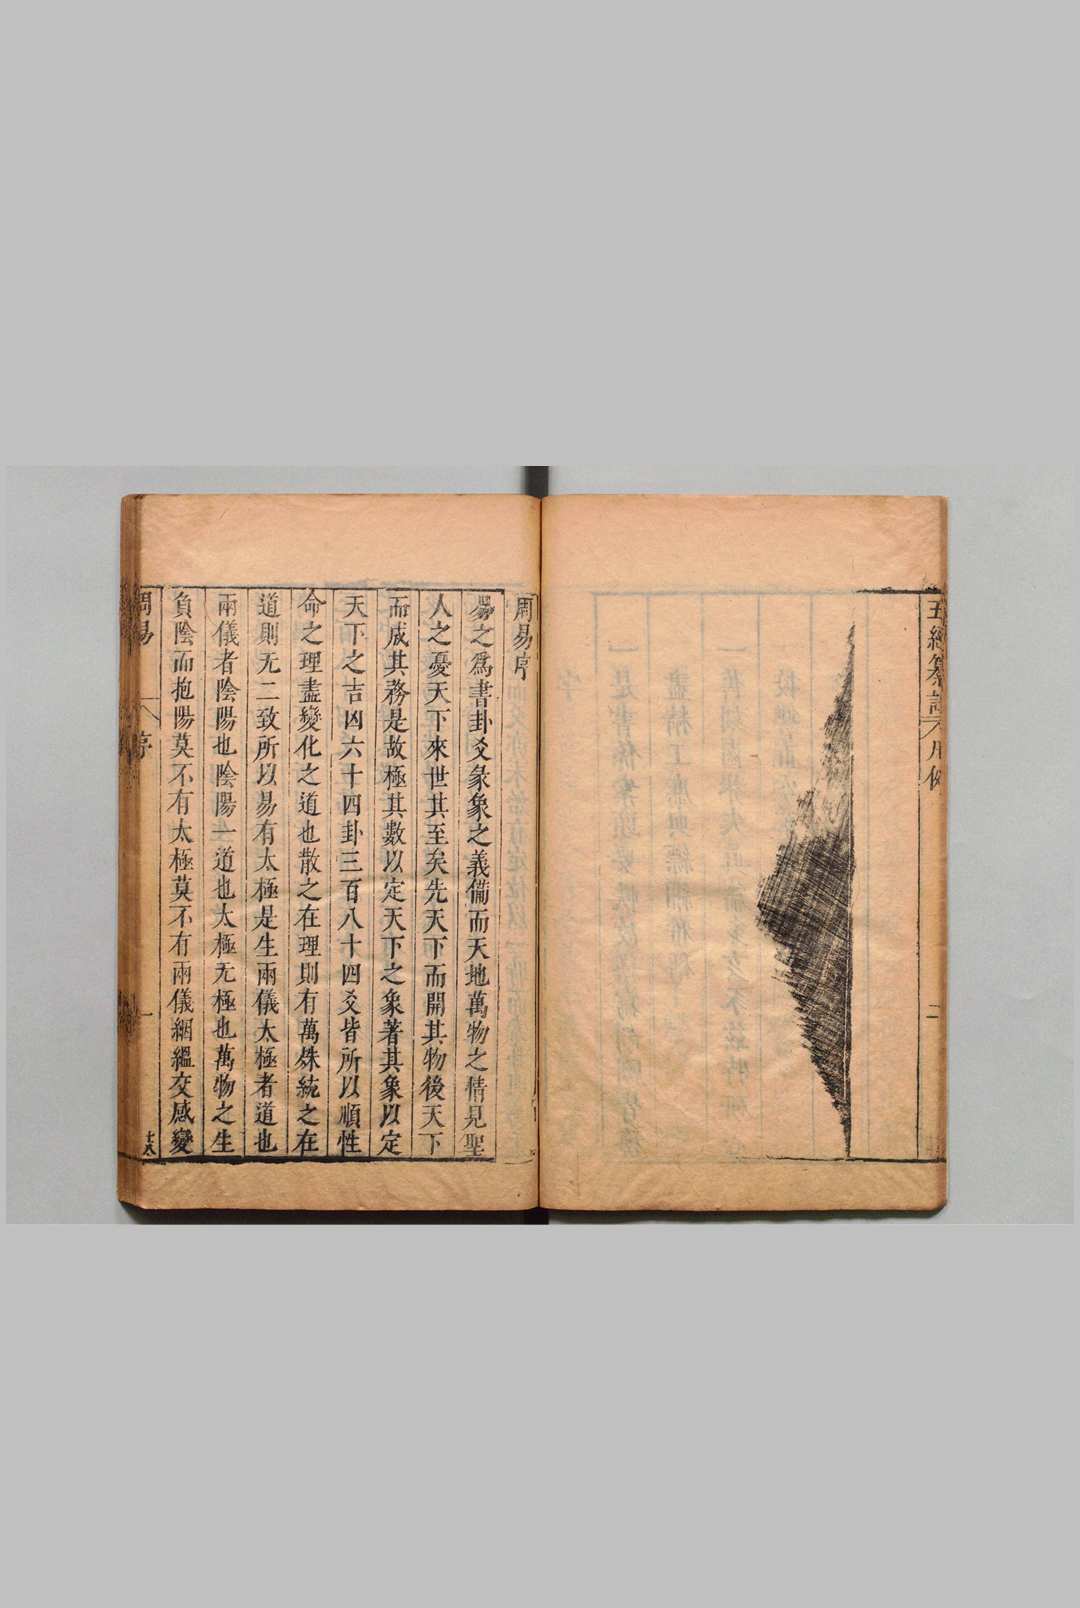 五經纂註 凡例
二
周易序
易之爲書卦爻彖象之義備而天地萬物之情見聖
人之憂天下來世其至矣先天下而開其物後天下
而成其務是故極其數以定天下之象著其象以定
天下之吉凶六十四卦三百八十四爻皆所以順性
命之理盡變化之道也散之在理則有萬殊統之在
道則无二致所以易有太極是生兩儀太極者道也
兩儀者陰陽也陰陽一道也太極无極也萬物之生
負陰而抱陽莫不有太極莫不有兩儀絪縕交感變
周易 序 一